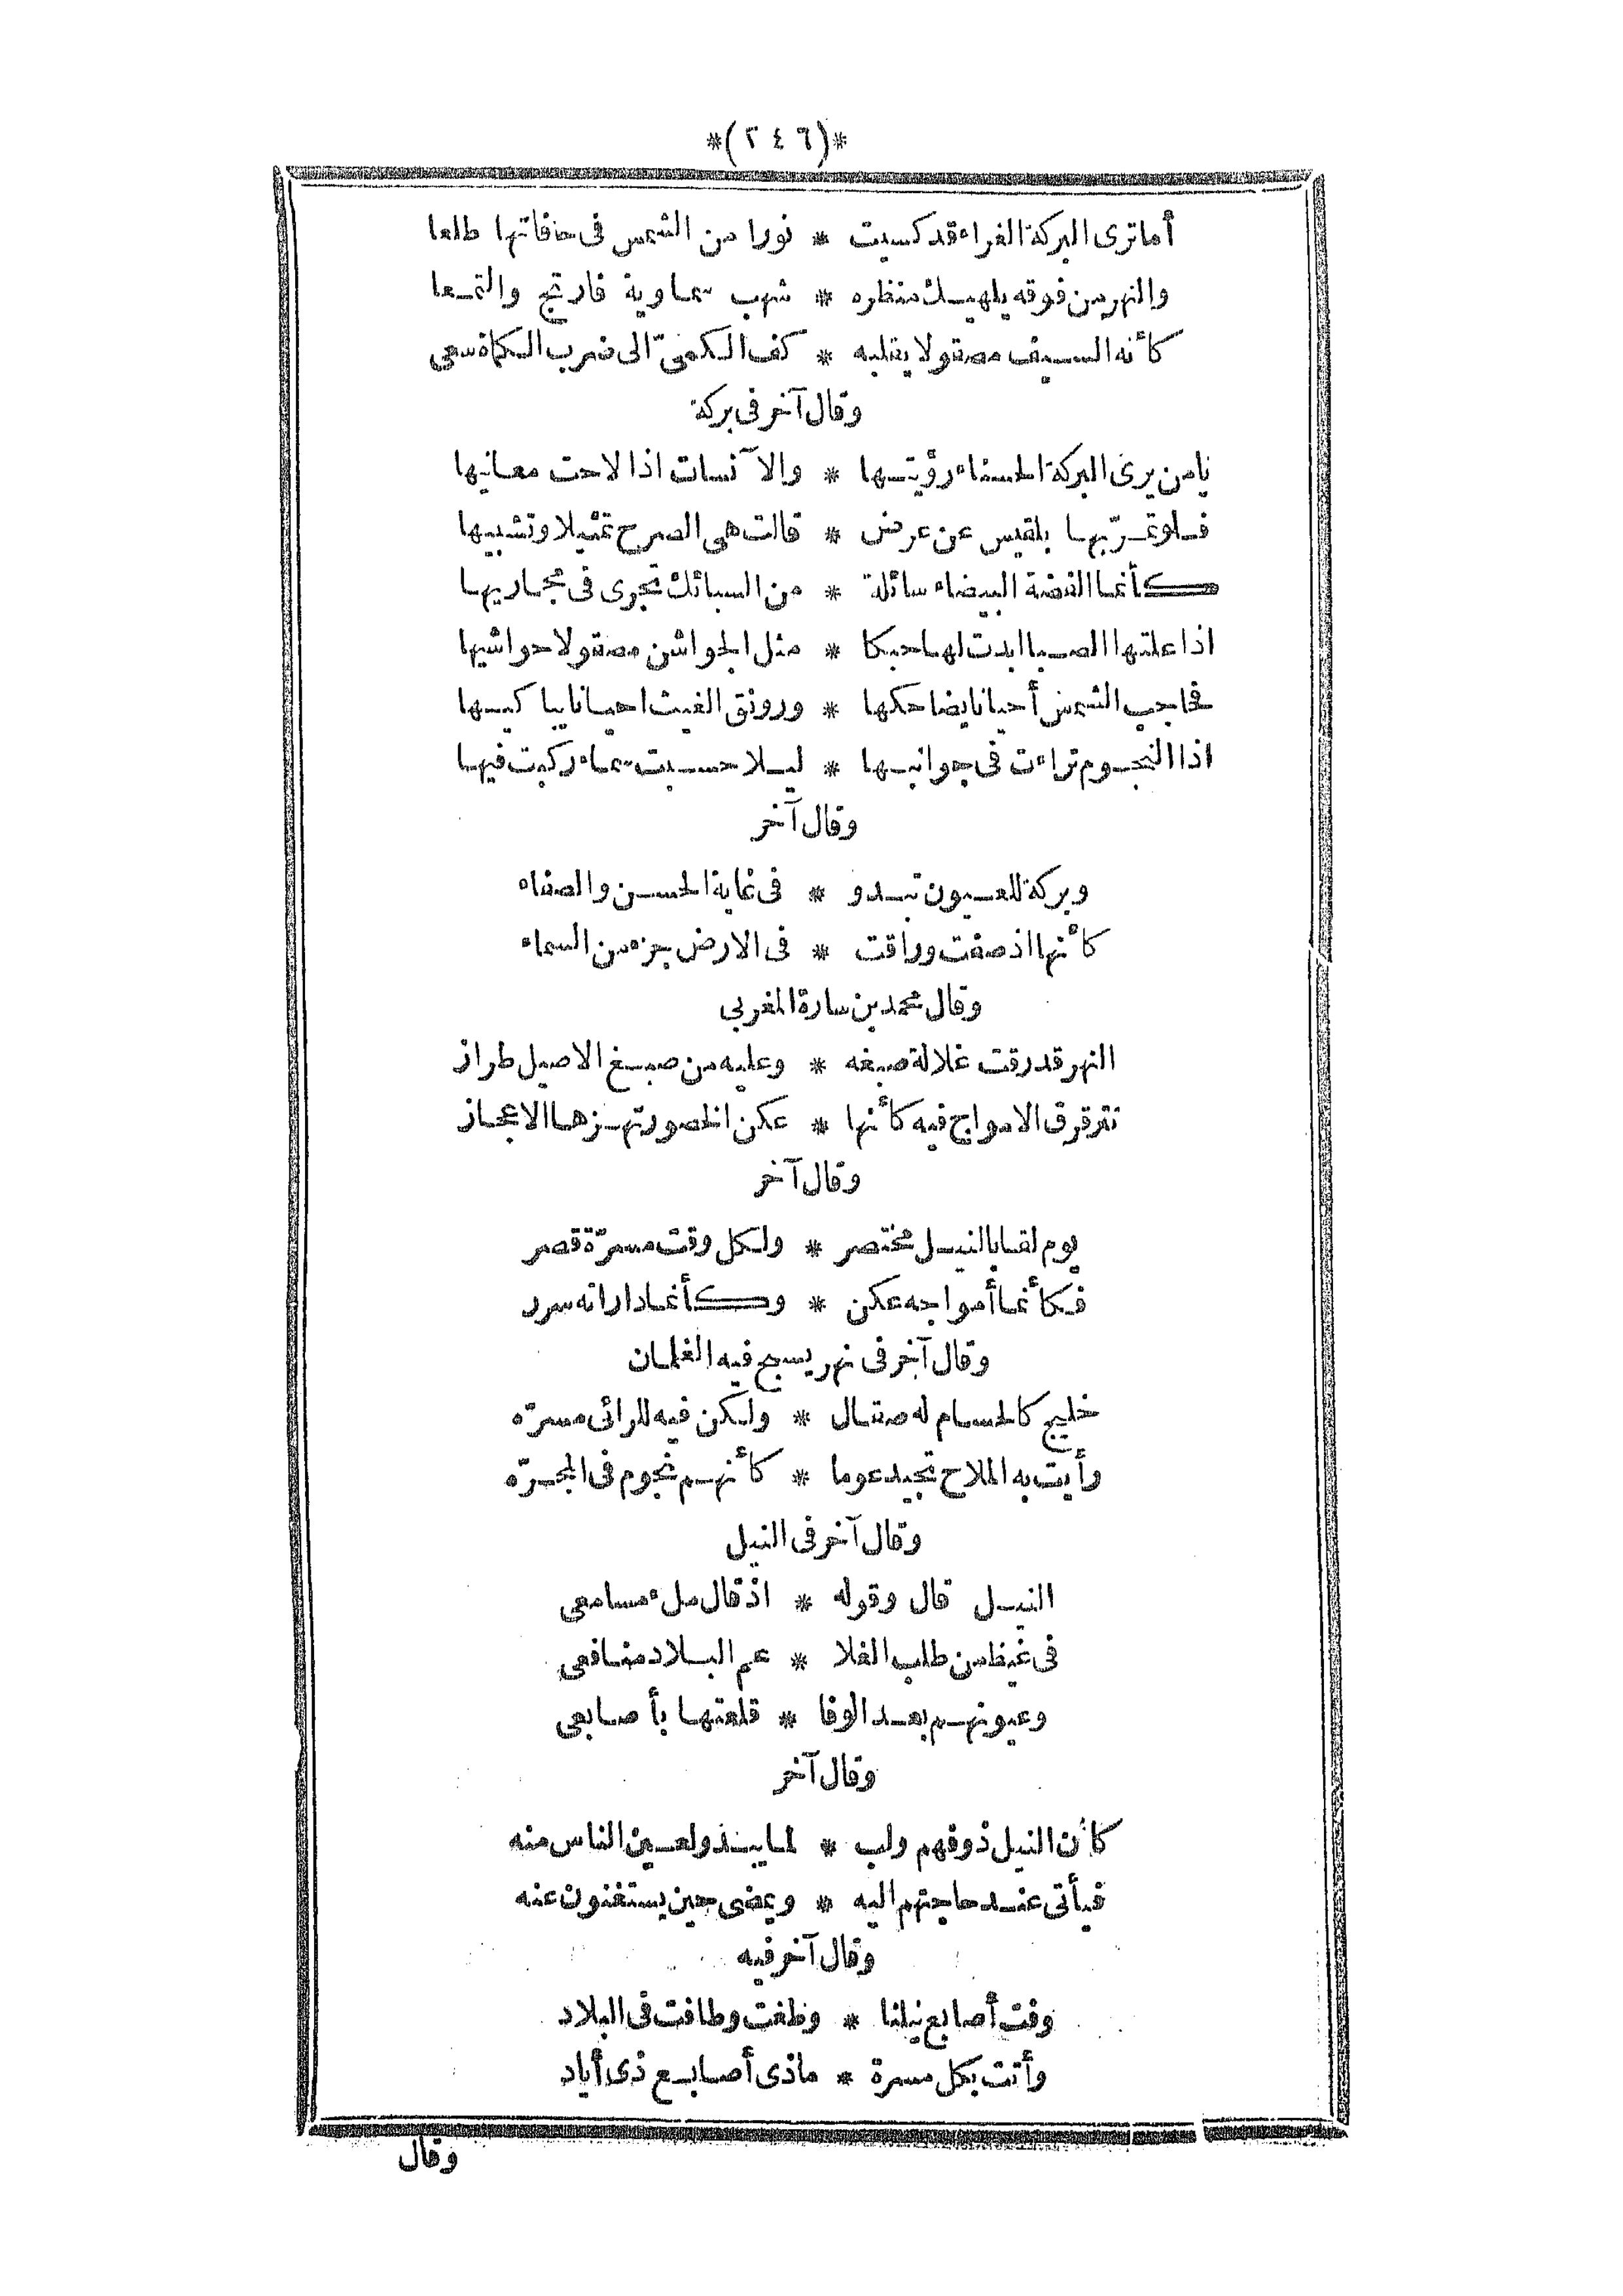 *(٢٤٦)*
أما ترى البركة الغراء قد كسيت * نورا من الشمس فى حافاتها طلعا
والنهر من فوقه يلهيك منظره * شهب سماوية فارتج والتمعا
كأنه السيف مصقولا يقلبه * كف الكمىّ الى ضرب الكماة سعى
وقال آخر فى بركة
يا من يرى البركة الحسناء رؤيتها * والآنسات اذا لاحت معانيها
فلو تمرّ بها بلقيس عن عرض * قالت هى الصرح تمثيلا وتشبيها
كأنما الفضة البيضاء سائلة * من السبائك تجرى فى مجاريها
اذا علتها الصبا ابدت لها حبكا * مثل الجواشن مصقولا حواشيها
فحاجب الشمس أحيانا يضاحكها * ورونق الغيث احيانا يباكيها
اذا النجوم تراءت فى جوانبها * ليلا حسبت سماء ركبت فيها
وقال آخر
وبركة للعيون تبدو * فى غاية الحسن والصفاء
كأنها اذ صفت وراقت * فى الارض جزء من السماء
وقال محمد بن سارة المغربى
النهر قد رقت غلالة صبغه * وعليه من صبغ الاصيل طراز
تترقرق الامواج فيه كأنها * عكن الخصور تهزها الاعجاز
وقال آخر
يوم لقا بالنيل مختصر * ولكل وقت مسرّة قصر
فكأنما أمواجه عكن * وكأنما داراته سرر
وقال آخر فى نهر يسبح فيه الغلمان
خليج كالحسام له صقال * ولكن فيه للرائى مسرّه
رأيت به الملاح تجيد عوما * كأنهم نجوم فى المجرّه
وقال آخر فى النيل
النيل قال وقوله * اذ قال ملء مسامعى
فى غيظ من طلب الغلا * عم البلاد منافعى
وعيونهم بعد الوفا * قلعتها بأصابعى
وقال آخر
كأن النيل ذو فهم ولب * لما يبدو لعين الناس منه
فيأتى عند حاجتهم اليه * ويمضى حين يستغنون عنه
وقال آخر فيه
وفت أصابع نيلنا * وطغت وطافت فى البلاد
وأتت بكل مسرة * ماذى أصابع ذى أياد
وقال